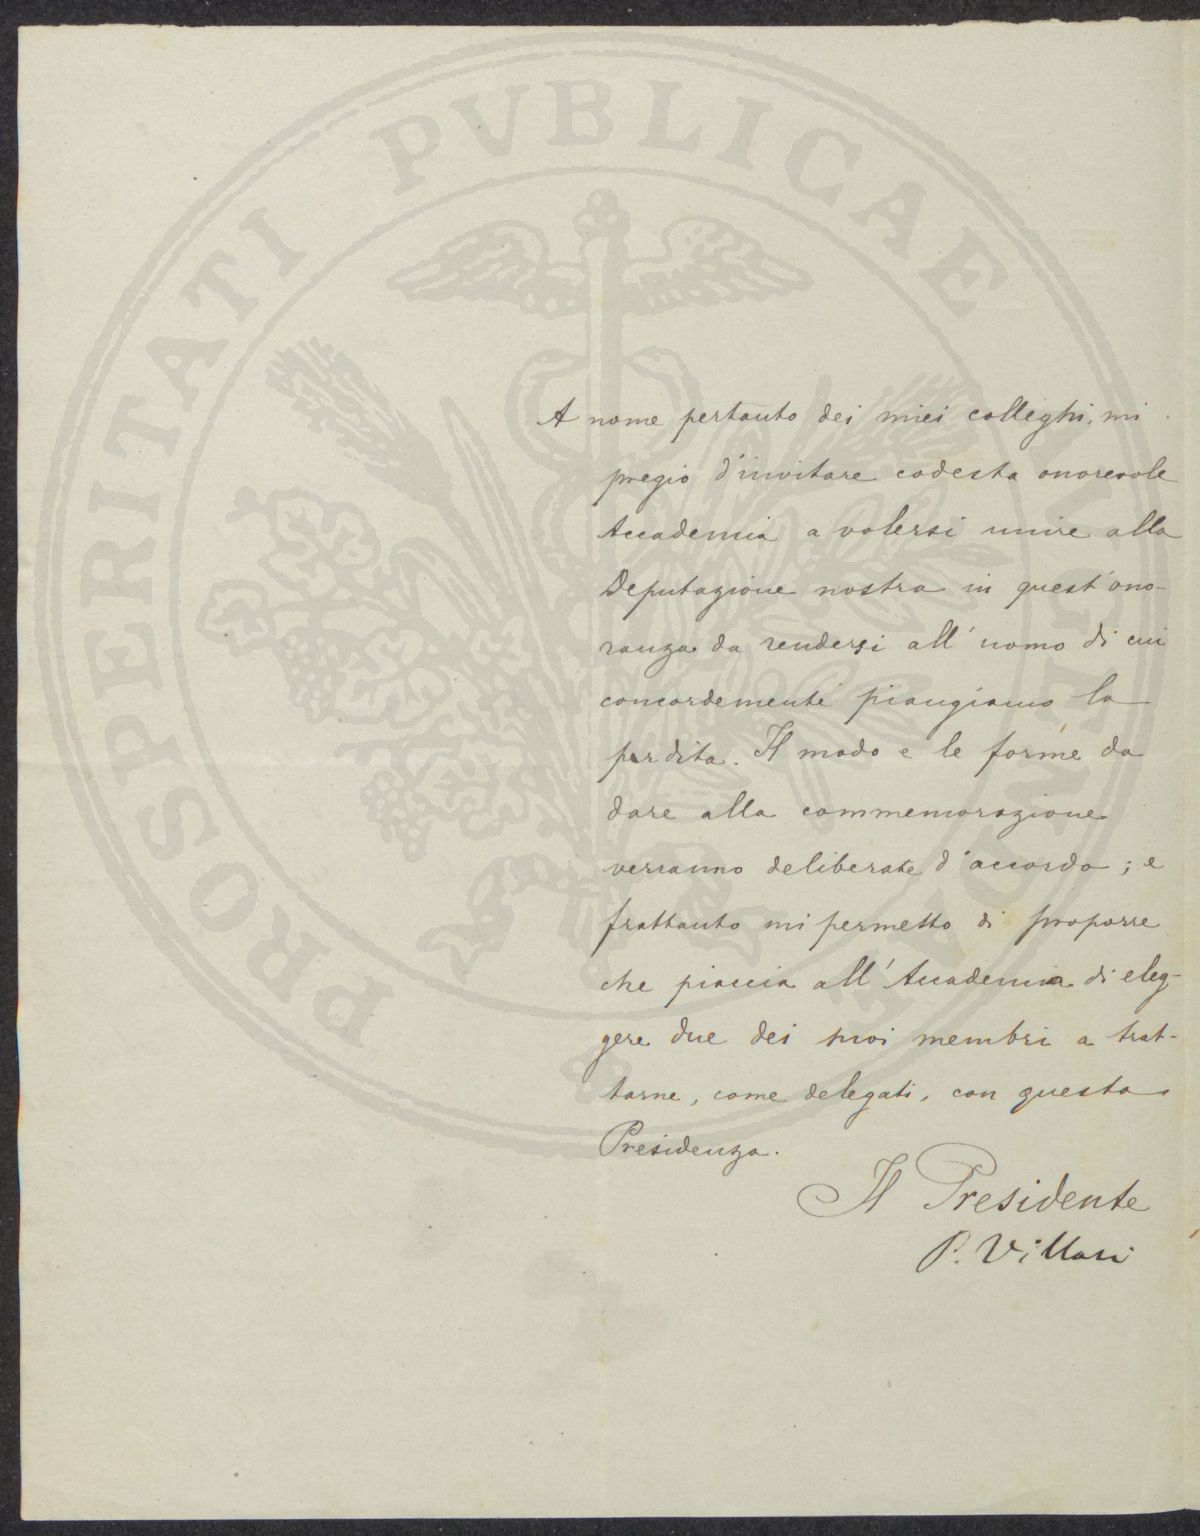 A nome pertanto dei miei colleghi, mi
pregio d'invitare codesta onorevole
Accademia a volersi unire alla
Deputazione nostra in quest'ono-
ranza da rendersi all'uomo di cui
concordemente piangiamo la
perdita. Il modo e le forme da
dare alla commemorazione
verranno deliberate d'accordo; e
frattanto mi permetto di proporre
che piaccia all'Accademia di eleg-
gere due dei suoi membri a trat-
tarne, come delegati, con questa
Presidenza.
Il Presidente
P. Villari
PROSPERITATI PVBLICAE